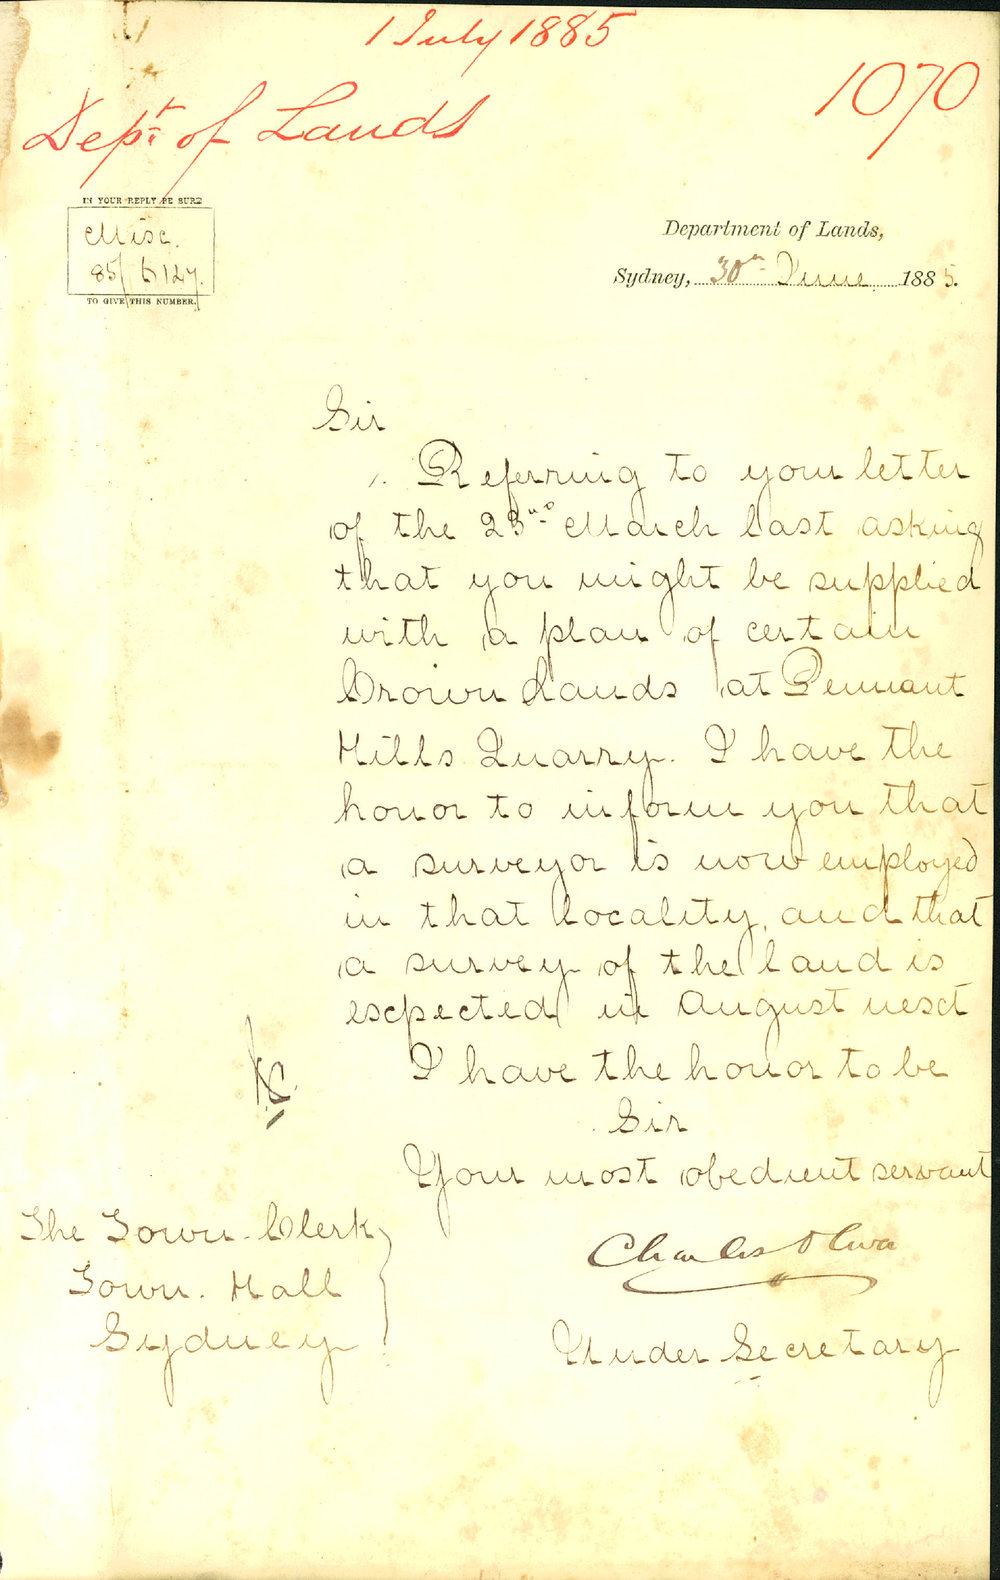 1 July 1885
1070
Dept. of Lands
IN YOUR REPLY BE SURE
Misc.
85/6127.
TO GIVE THIS NUMBER.
Department of Lands,
Sydney, 30th June 1885.
Sir
Referring to your letter
of the 23rd March last asking
that you might be supplied
with a plan of certain
Crown Lands at Pennant
Hills Quarry. I have the
honor to inform you that
a surveyor is now employed
in that locality, and that
a survey of the land is
expected in August next
I have the honor to be
Sir
Your most obedient servant
Charles Oliver
Under Secretary
The Town Clerk
Town Hall
Sydney